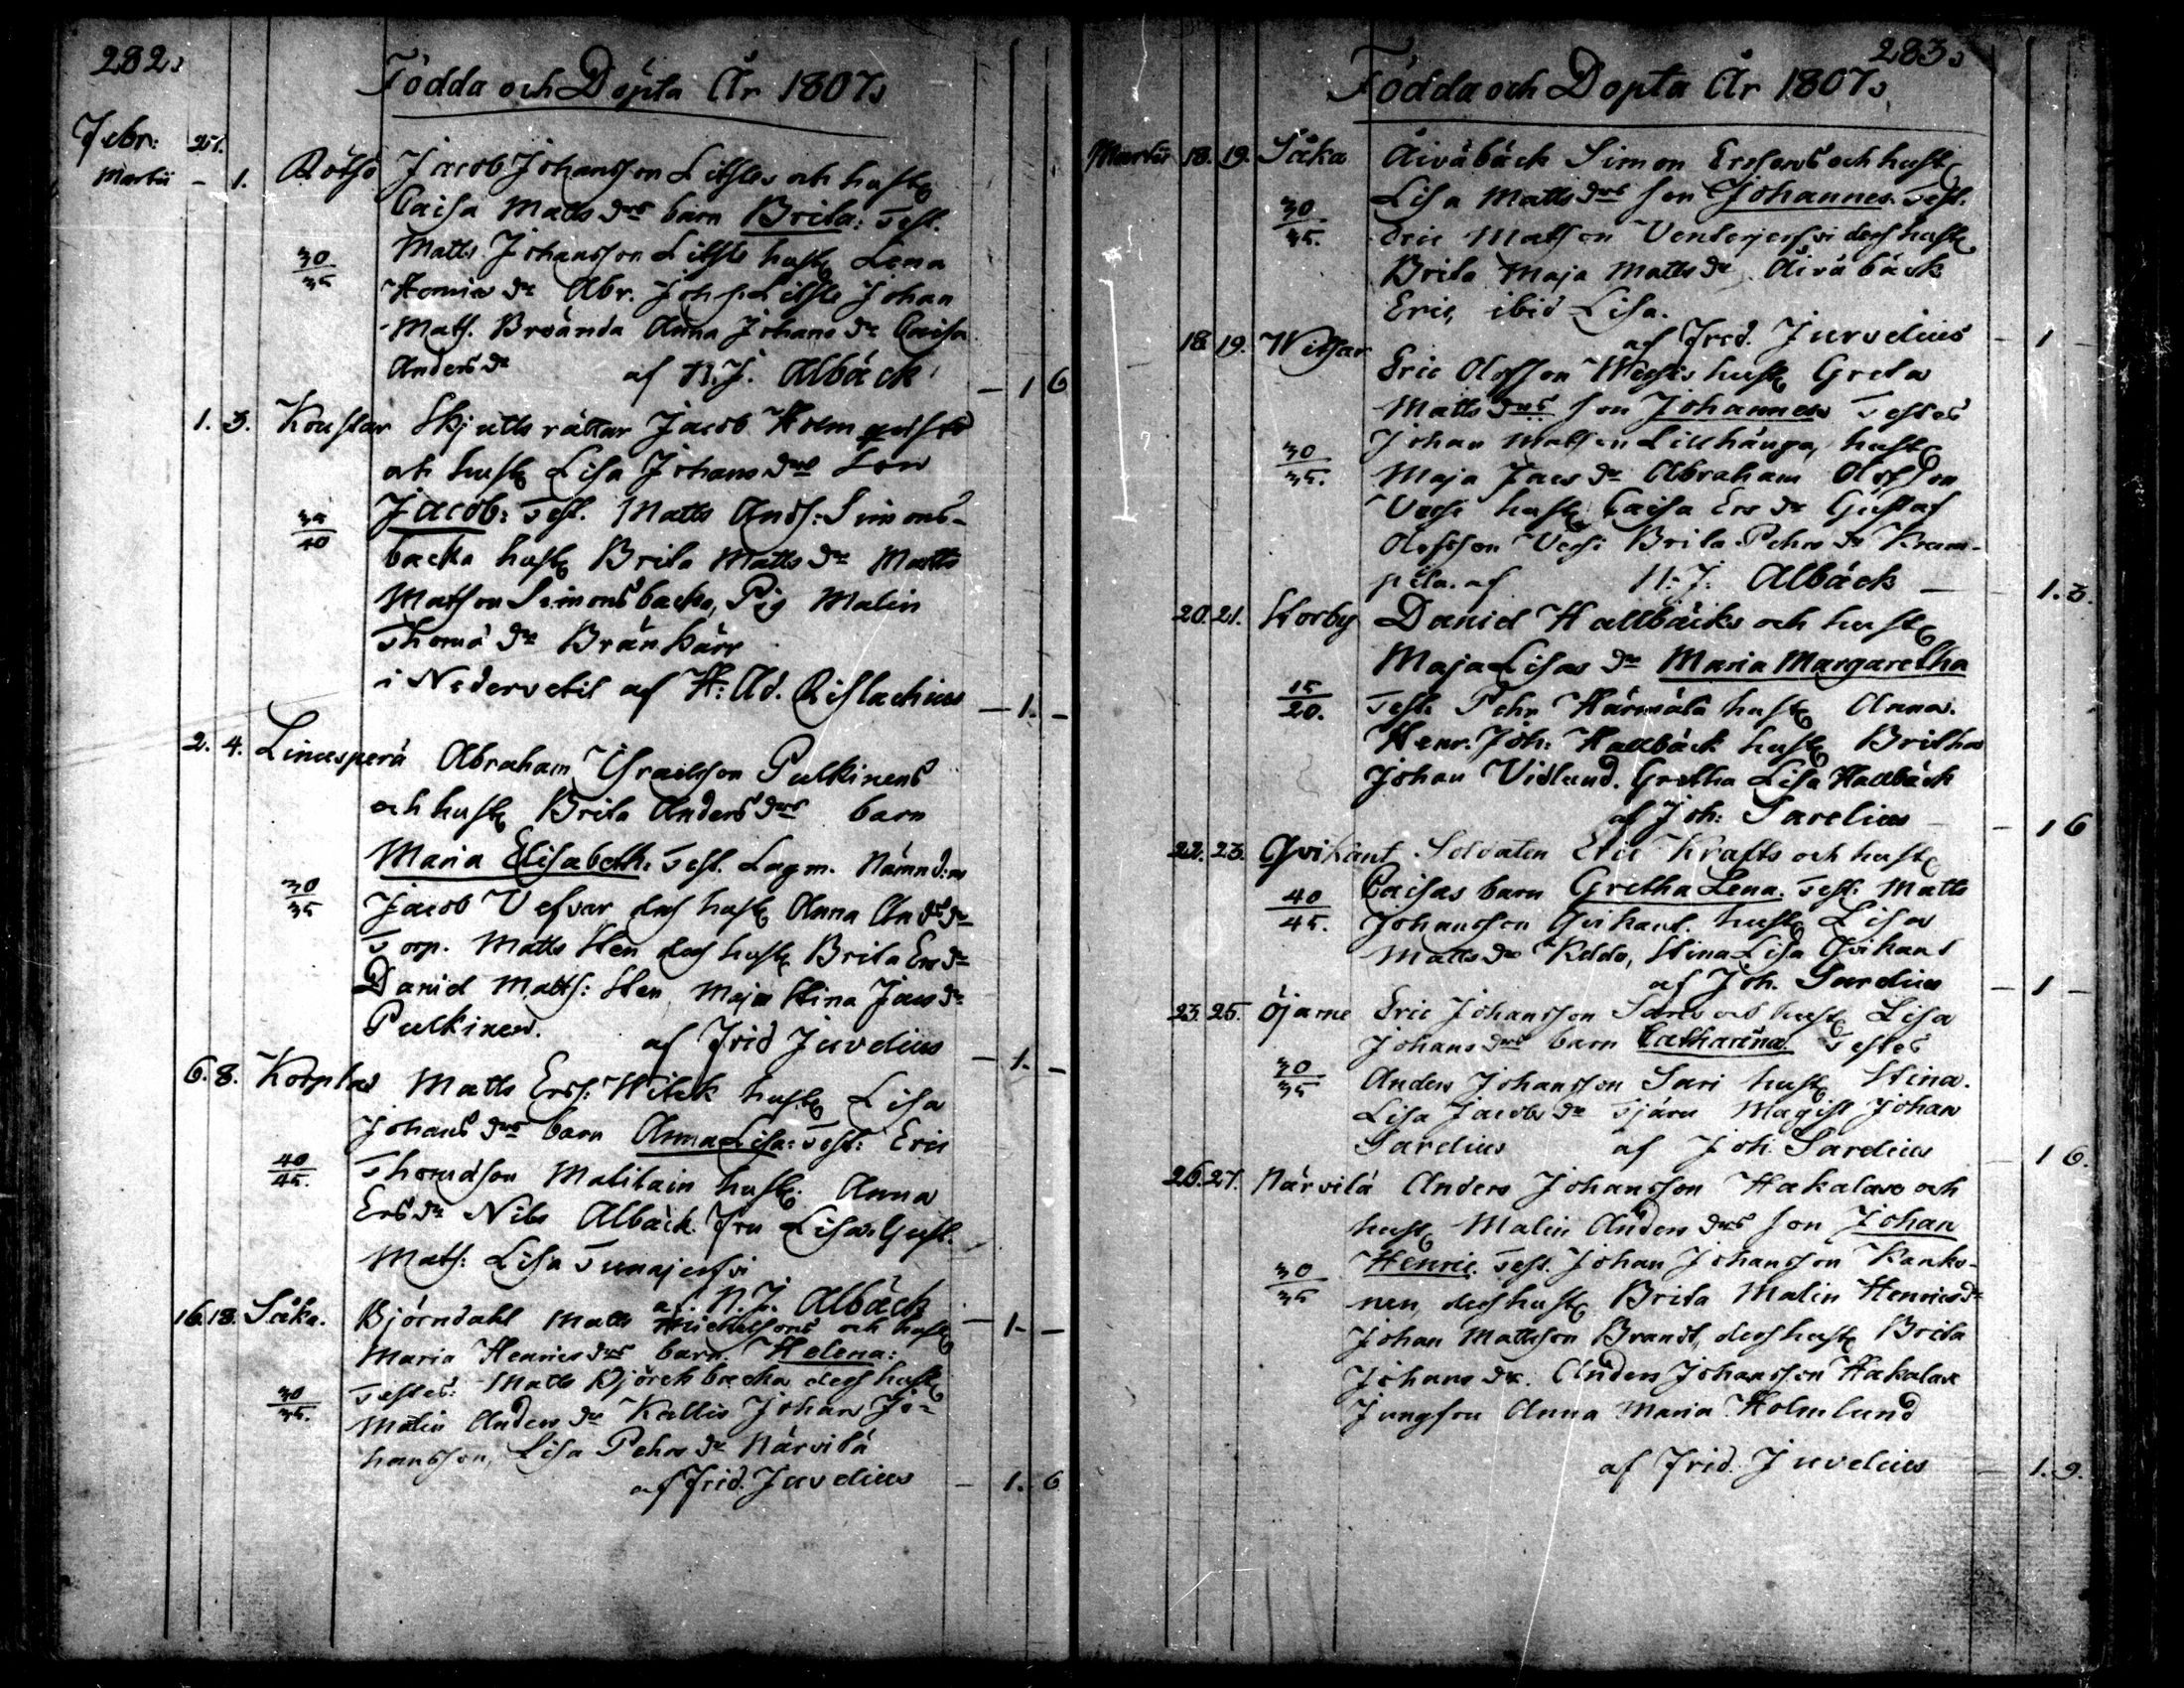 282.
Födda och Döpta År 1807.
Febr: 27.
Martii – 1. Rötsö Jacob Johansson Litsles och hust
Caisa Matts drs barn Brita: Test.
30/35 Matts Johansson Litsle hust Lena
dr Abr. Joh. s. Litsle Johan
Mats. Broända Anna Johans dr Caisa
Anders dr af N. J. Albäck – 1 6
1. 3. Koustar Skjutts rättar Jacob Holmquists
och hust Lisa Johans drs Son
Jacob: Test. Matts Ands: Simons-
/40 backa hust Brita Matts dr Matts
Matson Simonsbacka, Pig Malin
Thoma dr Brän
i Nedervetil af H: Ad. Rislachius – 1. –
2. 4. Linusperä Abraham Israelsson Pulkinens
och hust Brita Anders drs barn
Maria Elisabeth. Test. Lagm. Nämnd:n
30/35 Jacob Vefvar des hust Anna Ands dr
Torp. Matts Sten des hust Brita Ers dr
Daniel Matts: Sten, Maja Stina Jacs dr
Pulkinen. af Frid Juvelius – 1. –
6. 8. Korplax Matts Ers: Witick hust Lisa
Johans drs barn Anna Lisa: Test: Eric
40/45. Thomasson Matilain hust: Anna
Ers dr Nils Albäck. Fru Lisa. Gust.
Mats: Lisa Tunajerfvi
af. N. J. Albäck – 1. –
16. 18. Såka. Björndahl Matts Michelsons och hust
Maria Henrics drs barn Helena:
30/35. Testes: Matts Björckbacka des hust
Malin Anders dr Kallis Johan Jo-
hansson, Lisa Pehrs dr Närvilä
af Frid. Juvelius – 1. 6
283.
Födda och Döpta År 1807.
Martii 18. 19. Såka Åiväbäck Simon Erssons och hust
Lisa Matts drs son Johannes. Test.
30/35. Eric Matson Ventusjerfvi des hust
Brita Maja Matts dr Åiväbäck
Eric, ibid Lisa.
af Frid. Juvelius – 1 –
18. 19. Witsar Eric Olosson Wessis hust Greta
Matts drs son Johannes Testes
30/35. Johan Matson Lillhånga, hust
Maja Jacs dr Abraham Olosson
Vessi hust Caisa Ers dr Gustaf
Olosson Vessi Brita Pehrs dr Kram-
pila. af N. J. Albäck – 1. 3.
20. 21. Storby Daniel Hallbäcks och hust
Maja Lisas dr Maria Margaretha
15/20. Test: Pehr Härmälä hust Anna.
Henr. Joh: Hallbäck hust Britha
Johan Vidlund. Gretha Lisa Hallbäck
af Joh: Sarelius – 1 6
22. 23. Qvikant Soldaten Eric Krafts och hust
40/45. Caisas barn Gretha Lena. Test: Matts
Johansson Qvikant. hust Lisa
Matts dr Kelda, Stina Lisa Qvikant
af Joh. Sarelius – 1 –
23. 25. Öjarne Eric Johansson Saris och hust Lisa
Johans drs barn Catharina Testes
30/35 Anders Johansson Sari hust Stina.
Lisa Jacobs dr Magist Johan
Sarelius af Joh. Sarelius – 1 6.
26. 27. Närvilä Anders Johansson Hakalax och
hust Malin Anders drs son Johan
30/35 Henric. Test. Johan Johansson Kanko-
nen, des hust Brita Malin Henrics dr
Johan Mattsson Brandt, des hust Brita
Johans dr. Anders Johansson Hakalax
Jungfru Anna Maria Holmlund
af Frid. Juvelius – 1. 9.